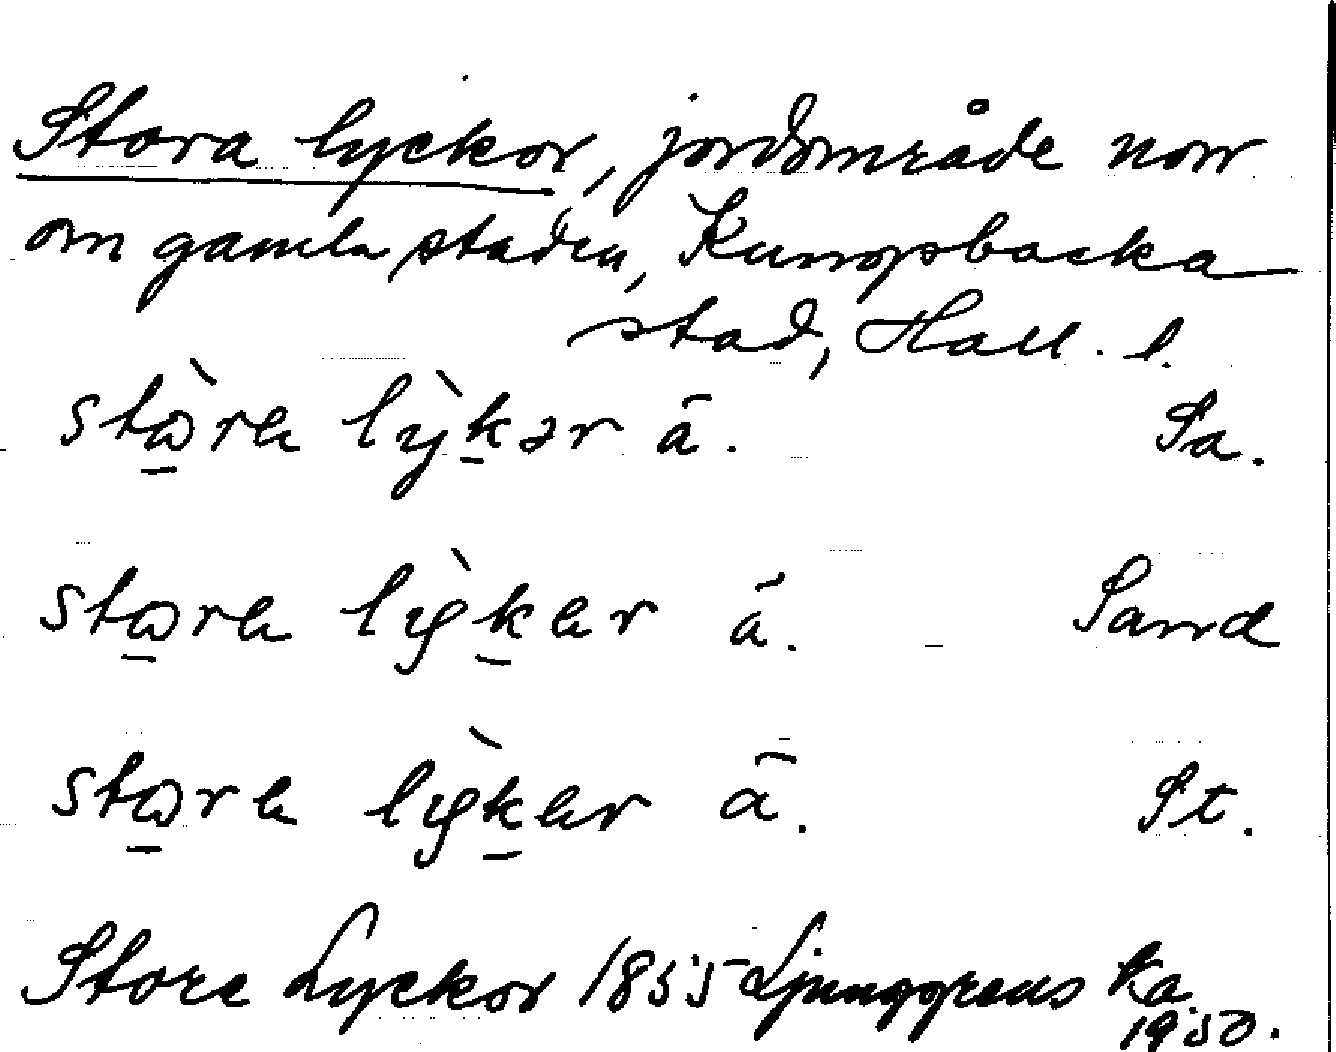 Stora lyckor, jordområde norr
om gamla staden, Kungsbacka
stad, Hall. l.
stɷ̀ra lỳkər ā. Sa.
stɷra lỳkar ā. Sand
stɷra lỳkar ā. St.
Store Lyckor 1855 Ljunggrens ka
1950.